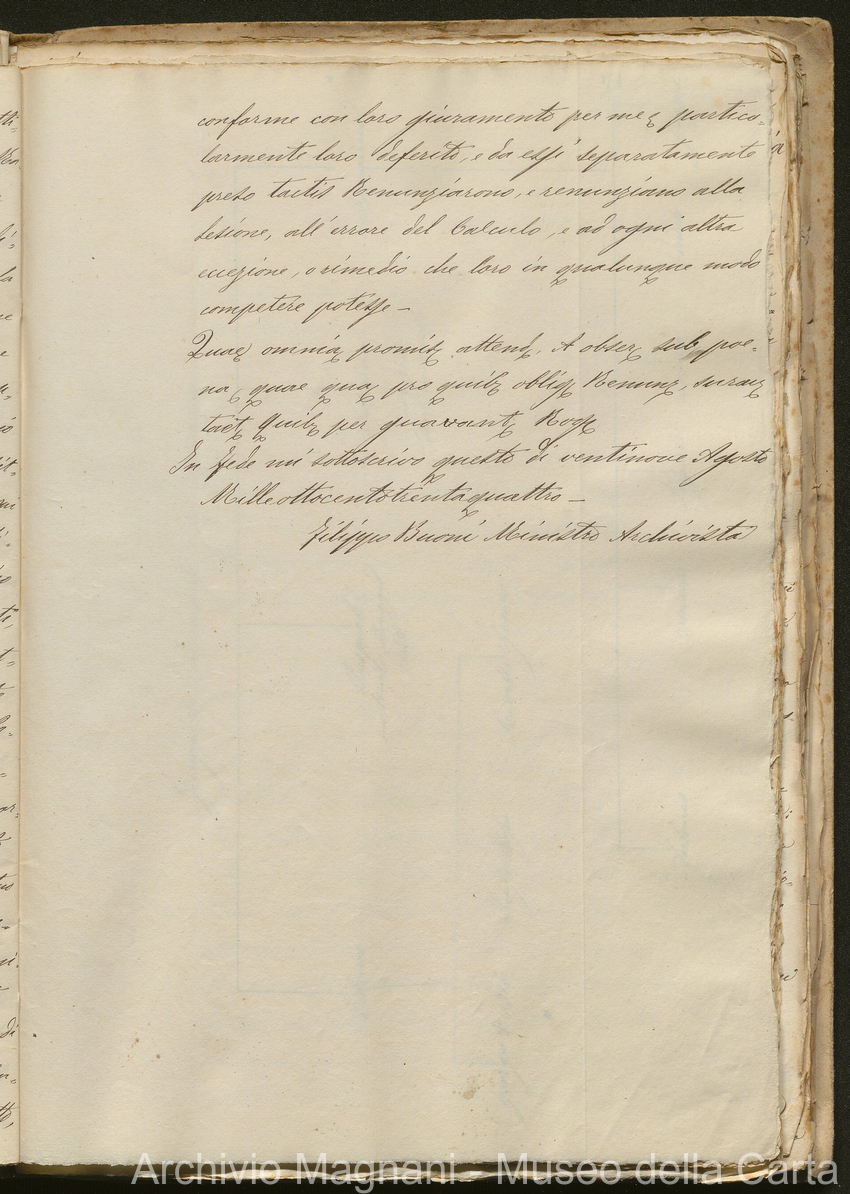 conforme con loro giuramento per me partico-
larmente loro deferito, e da essi separatamente
preso tactis Renunziarono, e renunziano alla
lesione, all'errore del Calculo, e ad ogni altra
eccezione, o rimedio che loro in qualunque modo
competere potesse —
Quae omnia promis attend. & obser sub poe-
na, quae qua pro quib oblig Renunz,
tact Quib per guarant Rog
In fede mi sottoscrivo questo dì ventinove Agosto
Milleottocentotrentaquattro —
Filippo Buoni Ministro Archivista
Archivio Magnani - Museo della Carta